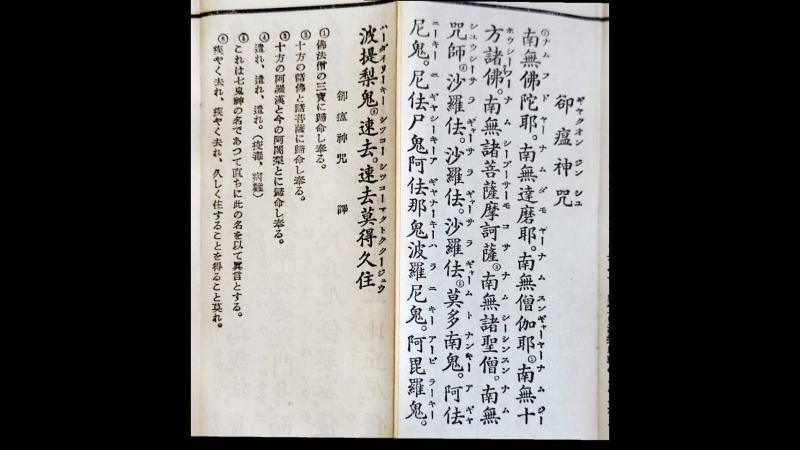 ギャクオンジンシュ
卻瘟神咒
①南無佛陀耶。南無達磨耶。南無僧伽耶。②南無十
方諸佛。南無諸菩薩摩訶薩。③南無諸聖僧。南無
咒師。④沙羅佉。沙羅佉。沙羅佉。⑤莫多南鬼。阿佉
尼鬼。尼佉尸鬼阿佉那鬼波羅尼鬼。阿毘羅鬼。
波提梨鬼。⑥速去。速去莫得久住
卻瘟神咒 譯
①佛法僧の三寶に歸命し奉る。
②十方の諸佛と諸菩薩に歸命し奉る。
③十方の阿羅漢と今の阿闍梨とに歸命し奉る。
④遣れ、遣れ、遣れ。(疫毒、病難)
⑤これは七鬼神の名であつて直ちに此の名を以て眞言とする。
⑥疾やく去れ、疾やく去れ、久しく住することを得ること莫れ。